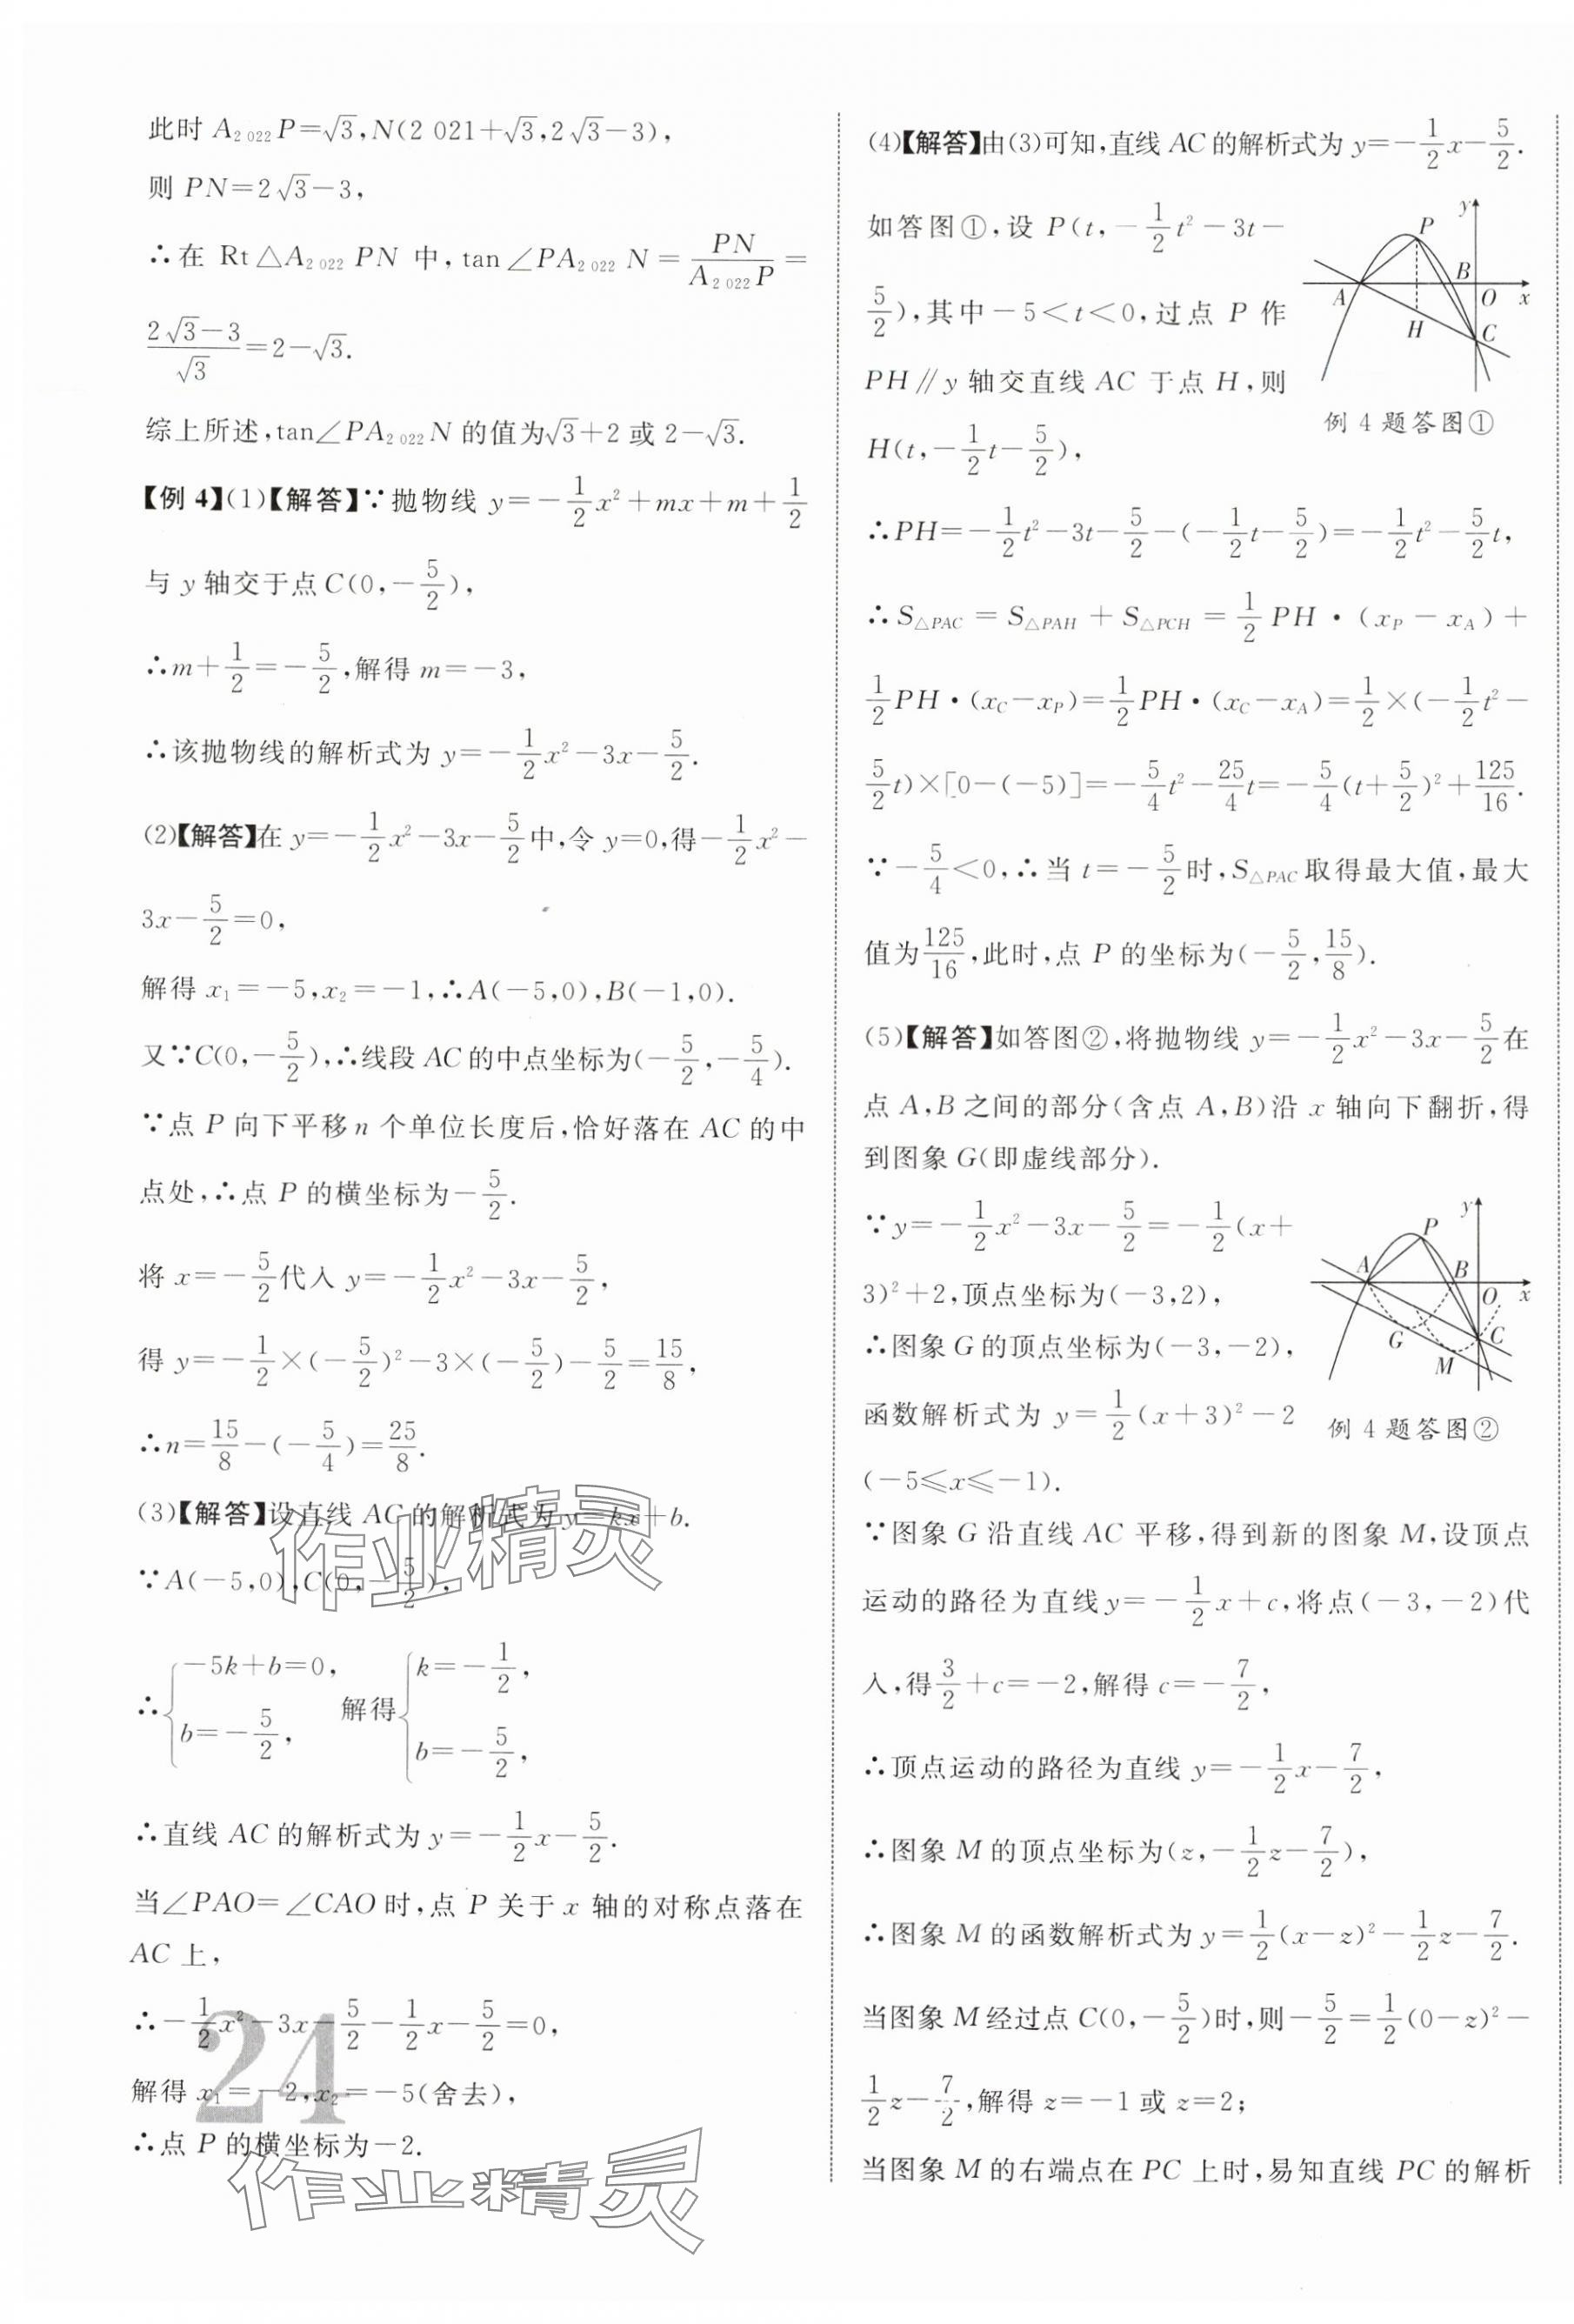 此时 A₂ ₀₂₂P=√3,N(2 021+√3,2√3-3),
则 PN=2√3-3,
∴在 Rt△A₂ ₀₂₂PN 中,tan∠PA₂ ₀₂₂N=PN/(A₂ ₀₂₂P)=
(2√3-3)/√3=2-√3.
综上所述,tan∠PA₂ ₀₂₂N 的值为√3+2 或 2-√3.
【例 4】(1)【解答】∵抛物线 y=-1/2x²+mx+m+1/2
与 y 轴交于点 C(0,-5/2),
∴m+1/2=-5/2,解得 m=-3,
∴该抛物线的解析式为 y=-1/2x²-3x-5/2.
(2)【解答】在 y=-1/2x²-3x-5/2中,令 y=0,得-1/2x²-
3x-5/2=0,
解得 x₁=-5,x₂=-1,∴A(-5,0),B(-1,0).
又∵C(0,-5/2),∴线段 AC 的中点坐标为(-5/2,-5/4).
∵点 P 向下平移 n 个单位长度后,恰好落在 AC 的中
点处,∴点 P 的横坐标为-5/2.
将 x=-5/2代入 y=-1/2x²-3x-5/2,
得 y=-1/2×(-5/2)²-3×(-5/2)-5/2=15/8,
∴n=15/8-(-5/4)=25/8.
(3)【解答】设直线 AC 的解析式为 y=kx+b.
∵A(-5,0),C(0,-5/2),
∴{-5k+b=0, b=-5/2, 解得{k=-1/2, b=-5/2,
∴直线 AC 的解析式为 y=-1/2x-5/2.
当∠PAO=∠CAO 时,点 P 关于 x 轴的对称点落在
AC 上,
∴-1/2x²-3x-5/2-1/2x-5/2=0,
解得 x₁=-2,x₂=-5(舍去),
∴点 P 的横坐标为-2.
24
作业精灵
作业精灵
(4)【解答】由(3)可知,直线 AC 的解析式为 y=-1/2x-5/2.
如答图①,设 P(t,-1/2t²-3t-
5/2),其中-5<t<0,过点 P 作
PH∥y 轴交直线 AC 于点 H,则
H(t,-1/2t-5/2),
y
P
B
A
O
x
H
C
例 4 题答图①
∴PH=-1/2t²-3t-5/2-(-1/2t-5/2)=-1/2t²-5/2t,
∴S△PAC=S△PAH+S△PCH=1/2PH·(xP-xA)+
1/2PH·(xC-xP)=1/2PH·(xC-xA)=1/2×(-1/2t²-
5/2t)×[0-(-5)]=-5/4t²-25/4t=-5/4(t+5/2)²+125/16.
∵-5/4<0,∴当 t=-5/2时,S△PAC取得最大值,最大
值为125/16,此时,点 P 的坐标为(-5/2,15/8).
(5)【解答】如答图②,将抛物线 y=-1/2x²-3x-5/2在
点 A,B 之间的部分(含点 A,B)沿 x 轴向下翻折,得
到图象 G(即虚线部分).
∵y=-1/2x²-3x-5/2=-1/2(x+
3)²+2,顶点坐标为(-3,2),
∴图象 G 的顶点坐标为(-3,-2),
函数解析式为 y=1/2(x+3)²-2
(-5≤x≤-1).
y
P
A
B
O
x
G
C
M
例 4 题答图②
∵图象 G 沿直线 AC 平移,得到新的图象 M,设顶点
运动的路径为直线 y=-1/2x+c,将点(-3,-2)代
入,得3/2+c=-2,解得 c=-7/2,
∴顶点运动的路径为直线 y=-1/2x-7/2,
∴图象 M 的顶点坐标为(z,-1/2z-7/2),
∴图象 M 的函数解析式为 y=1/2(x-z)²-1/2z-7/2.
当图象 M 经过点 C(0,-5/2)时,则-5/2=1/2(0-z)²-
1/2z-7/2,解得 z=-1 或 z=2;
当图象 M 的右端点在 PC 上时,易知直线 PC 的解析